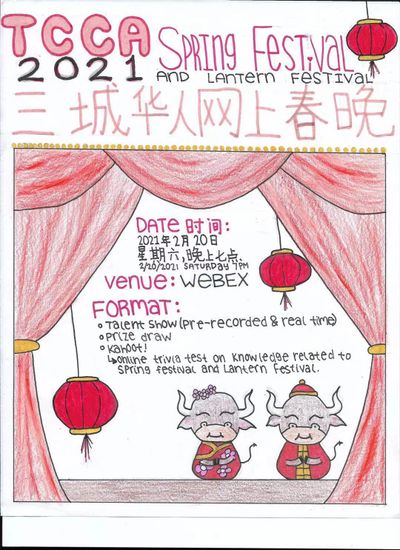 TCCA Spring Festival
2021 AND LANTERN FESTIVAL
三城华人网上春晚
DATE 时间:
2021年2月20日
星期六,晚上七点.
2/20/2021 SATURDAY 7PM
Venue: WEBEX
FORMAT:
Talent show (pre-recorded & real time)
Prize draw
Kahoot!
↳online trivia test on knowledge related to
Spring festival and Lantern festival.